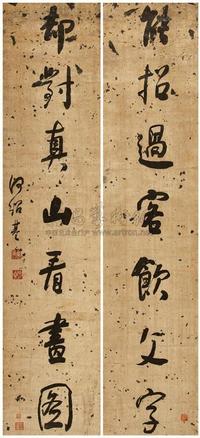 能招過客飲文字
却對真山看畫圖
何紹基